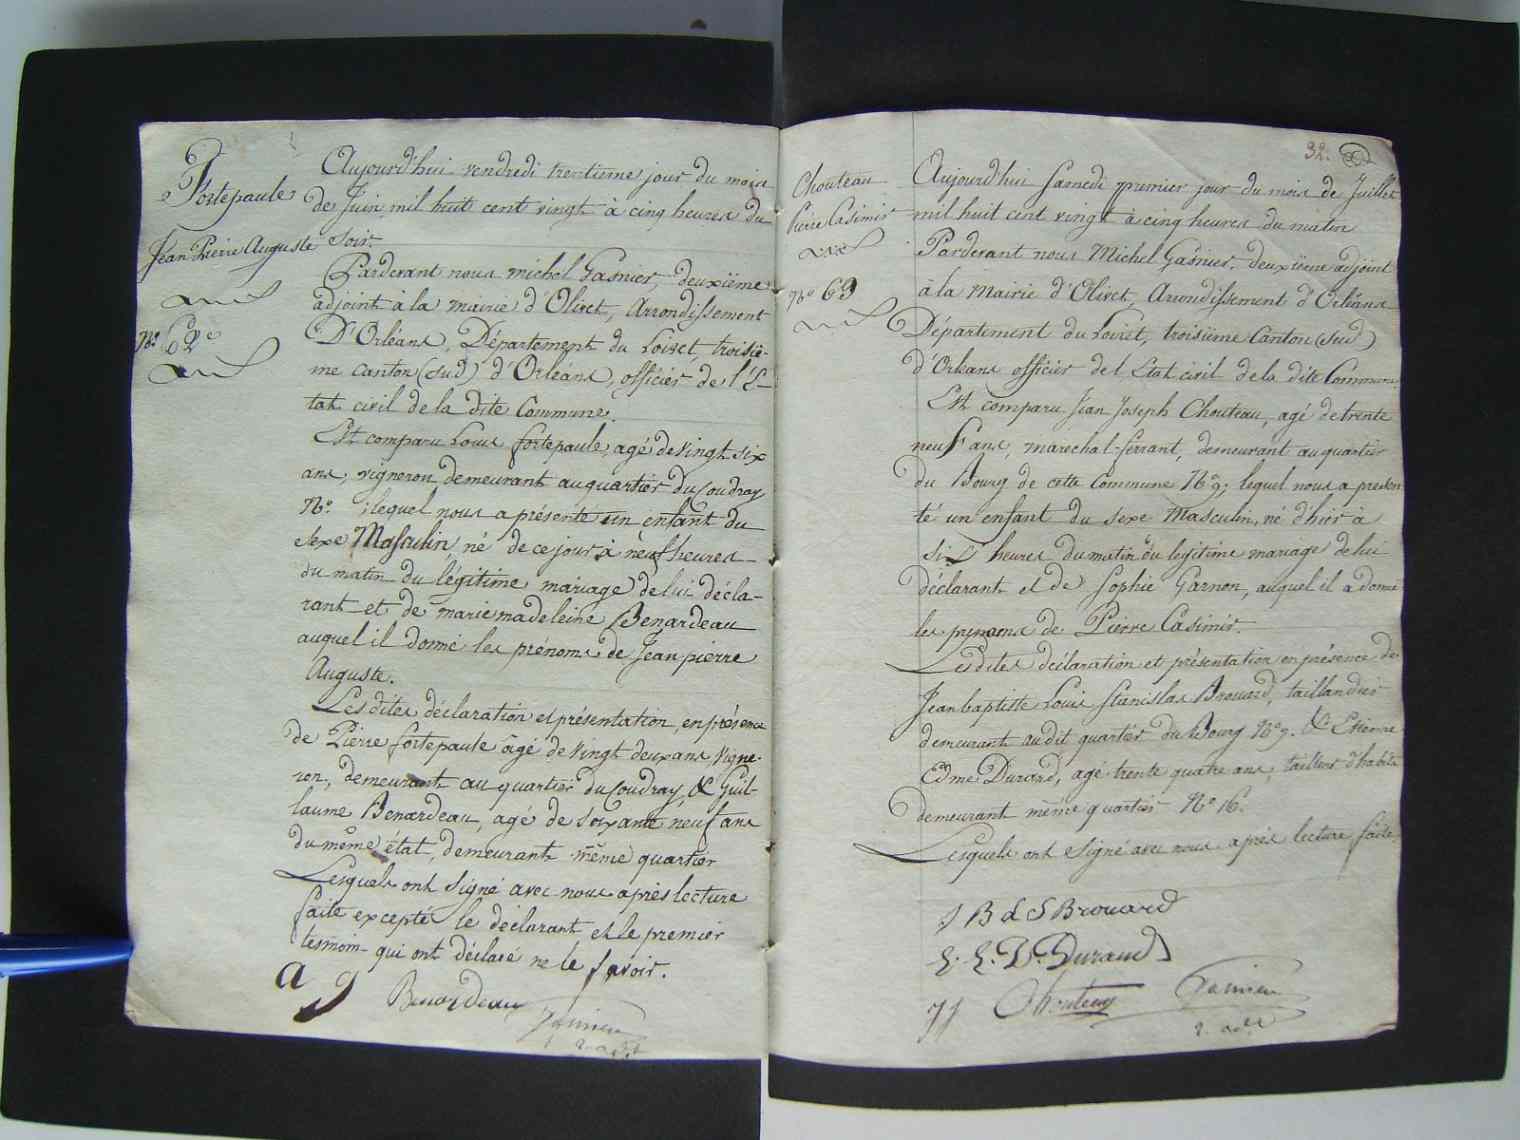 Fortepaule
Jean Pierre Auguste
No. 62e
Aujourd'hui vendredi trentieme jour du mois
de Juin mil huit cent vingt à cinq heures du
soir.
Pardevant nous michel Gasnier, deuxiëme
adjoint à la mairie d'Olivet, Arrondissement
D'Orléans, Département du Loiret, troisiè-
me canton (sud) d'Orléans, officier de l'É-
tat civil de la dite Commune.
Est comparu Louis fortepaule, agé de vingt six
ans, vigneron demeurant au quartier du Coudray
No. ; lequel nous a présenté un enfant du
sexe Masculin, né de ce jour à neuf heures
du matin du légitime mariage de lui décla-
rant et de marie madeleine Benardeau
auquel il donné les prénoms de Jean pierre
Auguste.
Les dites déclaration et présentation, en présence
de Pierre fortepaule âgé de vingt deux ans vigne-
ron, demeurant au quartier du Coudray, & Guil-
laume Benardeau, agé de soixante neuf ans
du même état, demeurant même quartier
Lesquels ont signé avec nous après lecture
faite excepté le déclarant et le premier
temoin qui ont déclaré ne le savoir.
a g Benardeau
Gasnier
2. adt
32.
Chouteau
Pierre Casimir
No 63
Aujourd'hui Samedi premier jour du mois de Juillet
mil huit cent vingt à cinq heures du matin
Pardevant nous Michel Gasnier, deuxiëme adjoint
à la Mairie d'Olivet, Arrondissement d'Orléans
Département du Loiret, troisiëme Canton (sud)
d'Orleans officier de l'Etat civil de la dite Commune.
Est comparu Jean Joseph Chouteau, agé de trente
neuf ans, marechal-ferrant, demeurant au quartier
du Bourg de cette Commune No 9; lequel nous a présen-
té un enfant du sexe Masculin, né d'hier à
six heures du matin du legitime mariage de lui
déclarant et de Sophie Garnon, auquel il a donné
les prenoms de Pierre Casimir.
Les dites déclaration et présentation en présence de
Jean baptiste Louis Stanislas Brouard, taillandier
demeurant audit quartier du Bourg No 9. & Etienne
Edme Durand, agé trente quatre ans, tailleur d'habits
demeurant même quartier No 16.
Lesquels ont signé avec nous après lecture faite.
J B L S Brouard
E. E. D. Durand
JJ Chouteau Gasnier
2. adt